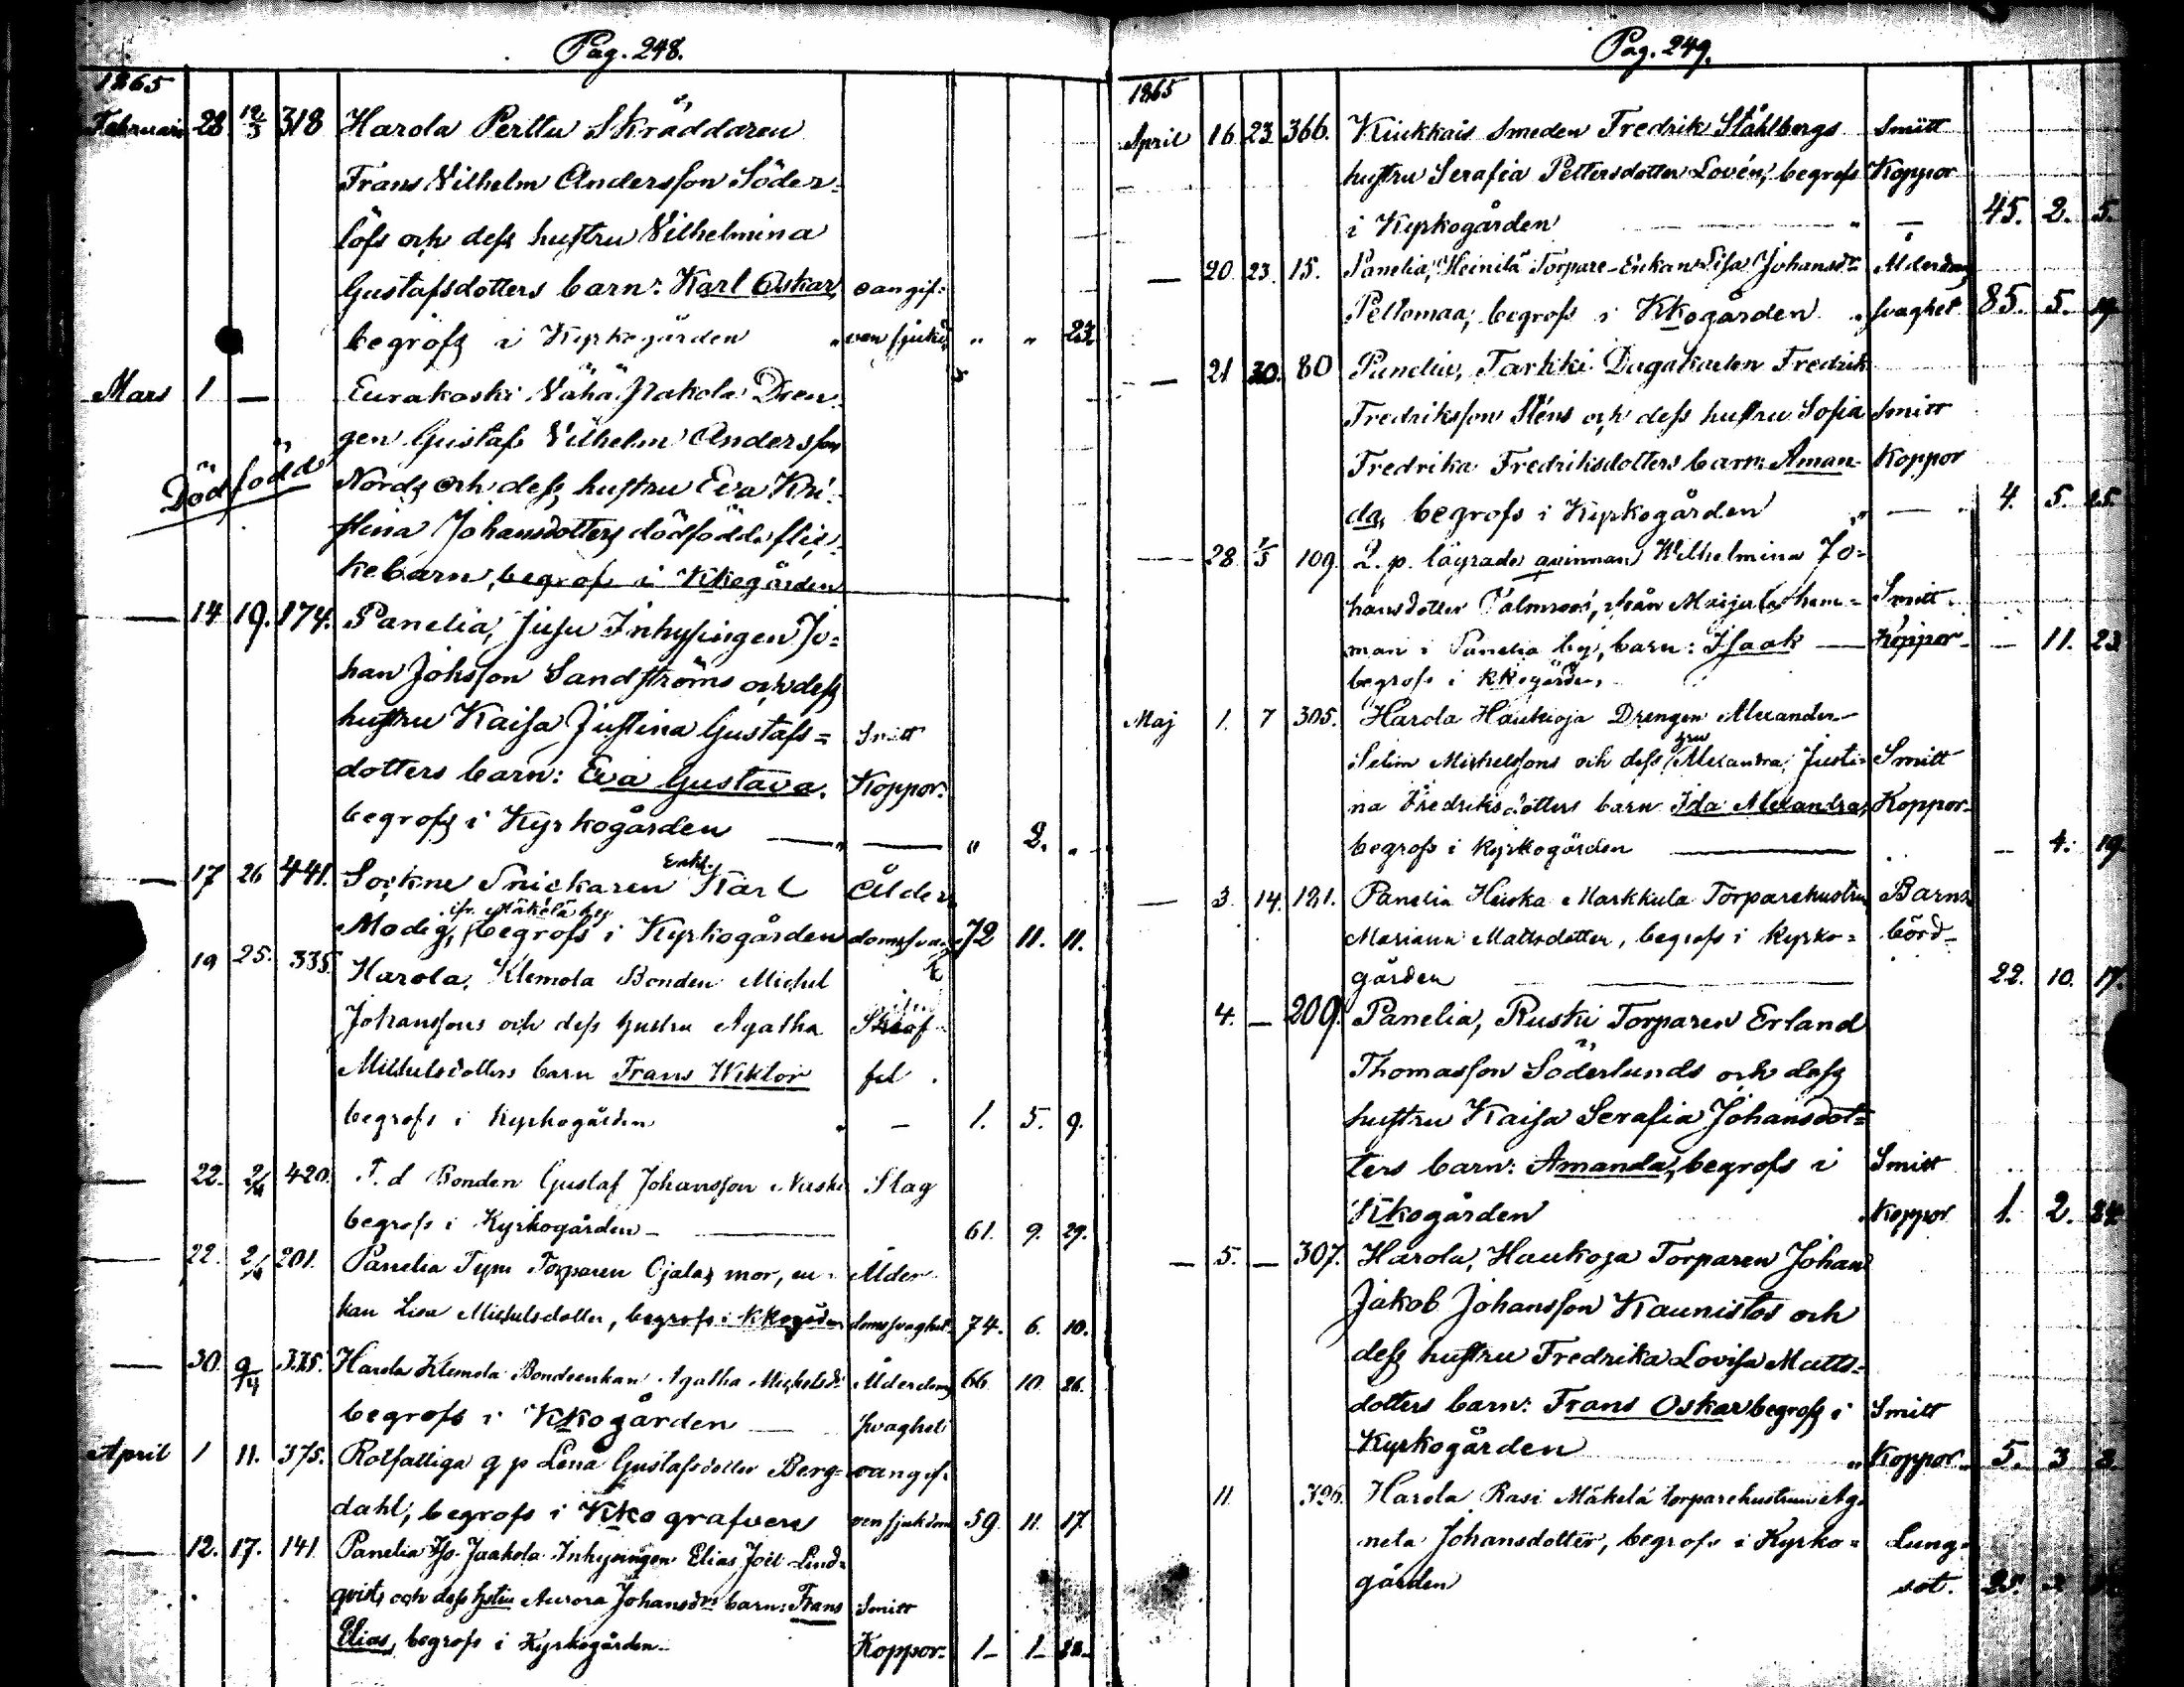 Pag. 248.
1865
Februari 28 12/3 318 Harola Perttu Skräddaren
Frans Vilhelm Andersson Söder-
löfs och dess hustru Vilhelmina
Gustafsdotters barn: Karl Oskar, oangif-
begrofs i Kyrkogården " ven sjukd. " " 23
Mars 1 — Eurakoski Vähä Dren-
gen Gustaf Vilhelm Andersson
Dödfödd Nords och dess hustru Eva Kri-
stina Johansdotters dödfödda flic-
kebarn, begrofs i Kkogården
— 14 19. 174. Panelia, Juju Inhysingen Jo-
han Johsson Sandströms och dess
hustru Kaisa Justina Gustafs= Smitt
dotters barn: Eva Gustava. Koppor.
begrofs i Kyrkogården — " — " 2. "
— 17 26 441. Sockne Snickaren Enkl. Karl Ålder
Modig, ifr. Mäkelä by begrofs i Kyrkogården domssvag 72 11. 11.
19 25. 335. Harola, Klemola Bonden Michel
Johanssons och dess hustru Agatha
Michelsdotters barn Frans Wiktor fel.
begrofs i Kyrkogården " — 1. 5. 9.
— 22. 2/4 420. F. d Bonden Gustaf Johansson Slag
begrofs i Kyrkogården — 61. 9. 29.
— 22. 2/4 201. Panelia Torparen Ojalas mor, en- Ålder-
kan Lisa Michelsdotter, begrofs i Kkogården domssvaghet. 74. 6. 10.
— 30. 9/4 335. Harola Klemola Bondeenkan Agatha Michelsdr Ålderdoms 66 10 26.
begrofs i Kkogården — svaghet
April 1 11. 375. Rotfattiga q p Lena Gustafsdotter Berg- oangif-
dahl, begrofs i Kko grafvers ven sjukdom 59. 11. 17
— 12. 17. 141 Panelia Jaakola Inhysingen Elias Joël Lind-
qvists och dess hstru Aurora Johansdrs barn: Frans Smitt
Elias, begrofs i Kyrkogården Koppor 1— 1—
Pag. 249.
1865
April 16 23 366. Kiukkais Smeden Fredrik Ståhlbergs Smitt
hustru Serafia Pettersdotter Lovén, begrofs Koppor
i Kyrkogården " — 45. 2. 5.
— 20. 23. 15. Panelia, Heinilä Torpare-Enkan Lisa Johansdr Ålderdoms
Peltomaa, begrofs i Kkogården " svaghet 85. 5. 19.
— 21 30. 80 Panelia, Tarkki Dagakarlen Fredrik
Fredriksson Sténs och dess hustru Sofia Smitt
Fredrika Fredriksdotters barn: Aman- Koppor
da, begrofs i Kyrkogården " — 4. 5. 25.
— 28. 1/5 109. 2. p. lägrade qvinnan Wilhelmina Jo-
hansdotter Palmroos, från hem- Smitt
man i Panelia by, barn: Isaak — Koppor — 11. 23
begrofs i kkogården.
Maj 1. 7 305. Harola Haukioja Drengen Alexander
Selim Michelssons och dess hru Alexandra Justi- Smitt
na Fredriksdotters barn Ida Alexandra, Koppor
begrofs i kyrkogården — — 4. 19
— 3. 14. 121. Panelia Markkula Torparehustru Barns
Mariana Mattsdotter, begrofs i kyrko- börd
gården — 22. 10. 17.
4. — 209. Panelia, Ruski Torparen Erland
Thomasson Söderlunds och dess
hustru Kaisa Serafia Johansdot=
ters barn: Amanda, begrofs i Smitt
Kkogården Koppor 1. 2. 24
— 5. — 307. Harola, Haukoja Torparen Johan
Jakob Johansson Kaunistos och
dess hustru Fredrika Lovisa Matts-
dotters barn: Frans Oskar begrofs i Smitt
Kyrkogården " Koppor 5. 3 3.
11. 326. Harola Rasi Mäkelä torparehustrun Ag-
neta Johansdotter, begrofs i Kyrko= Lung-
gården sot.